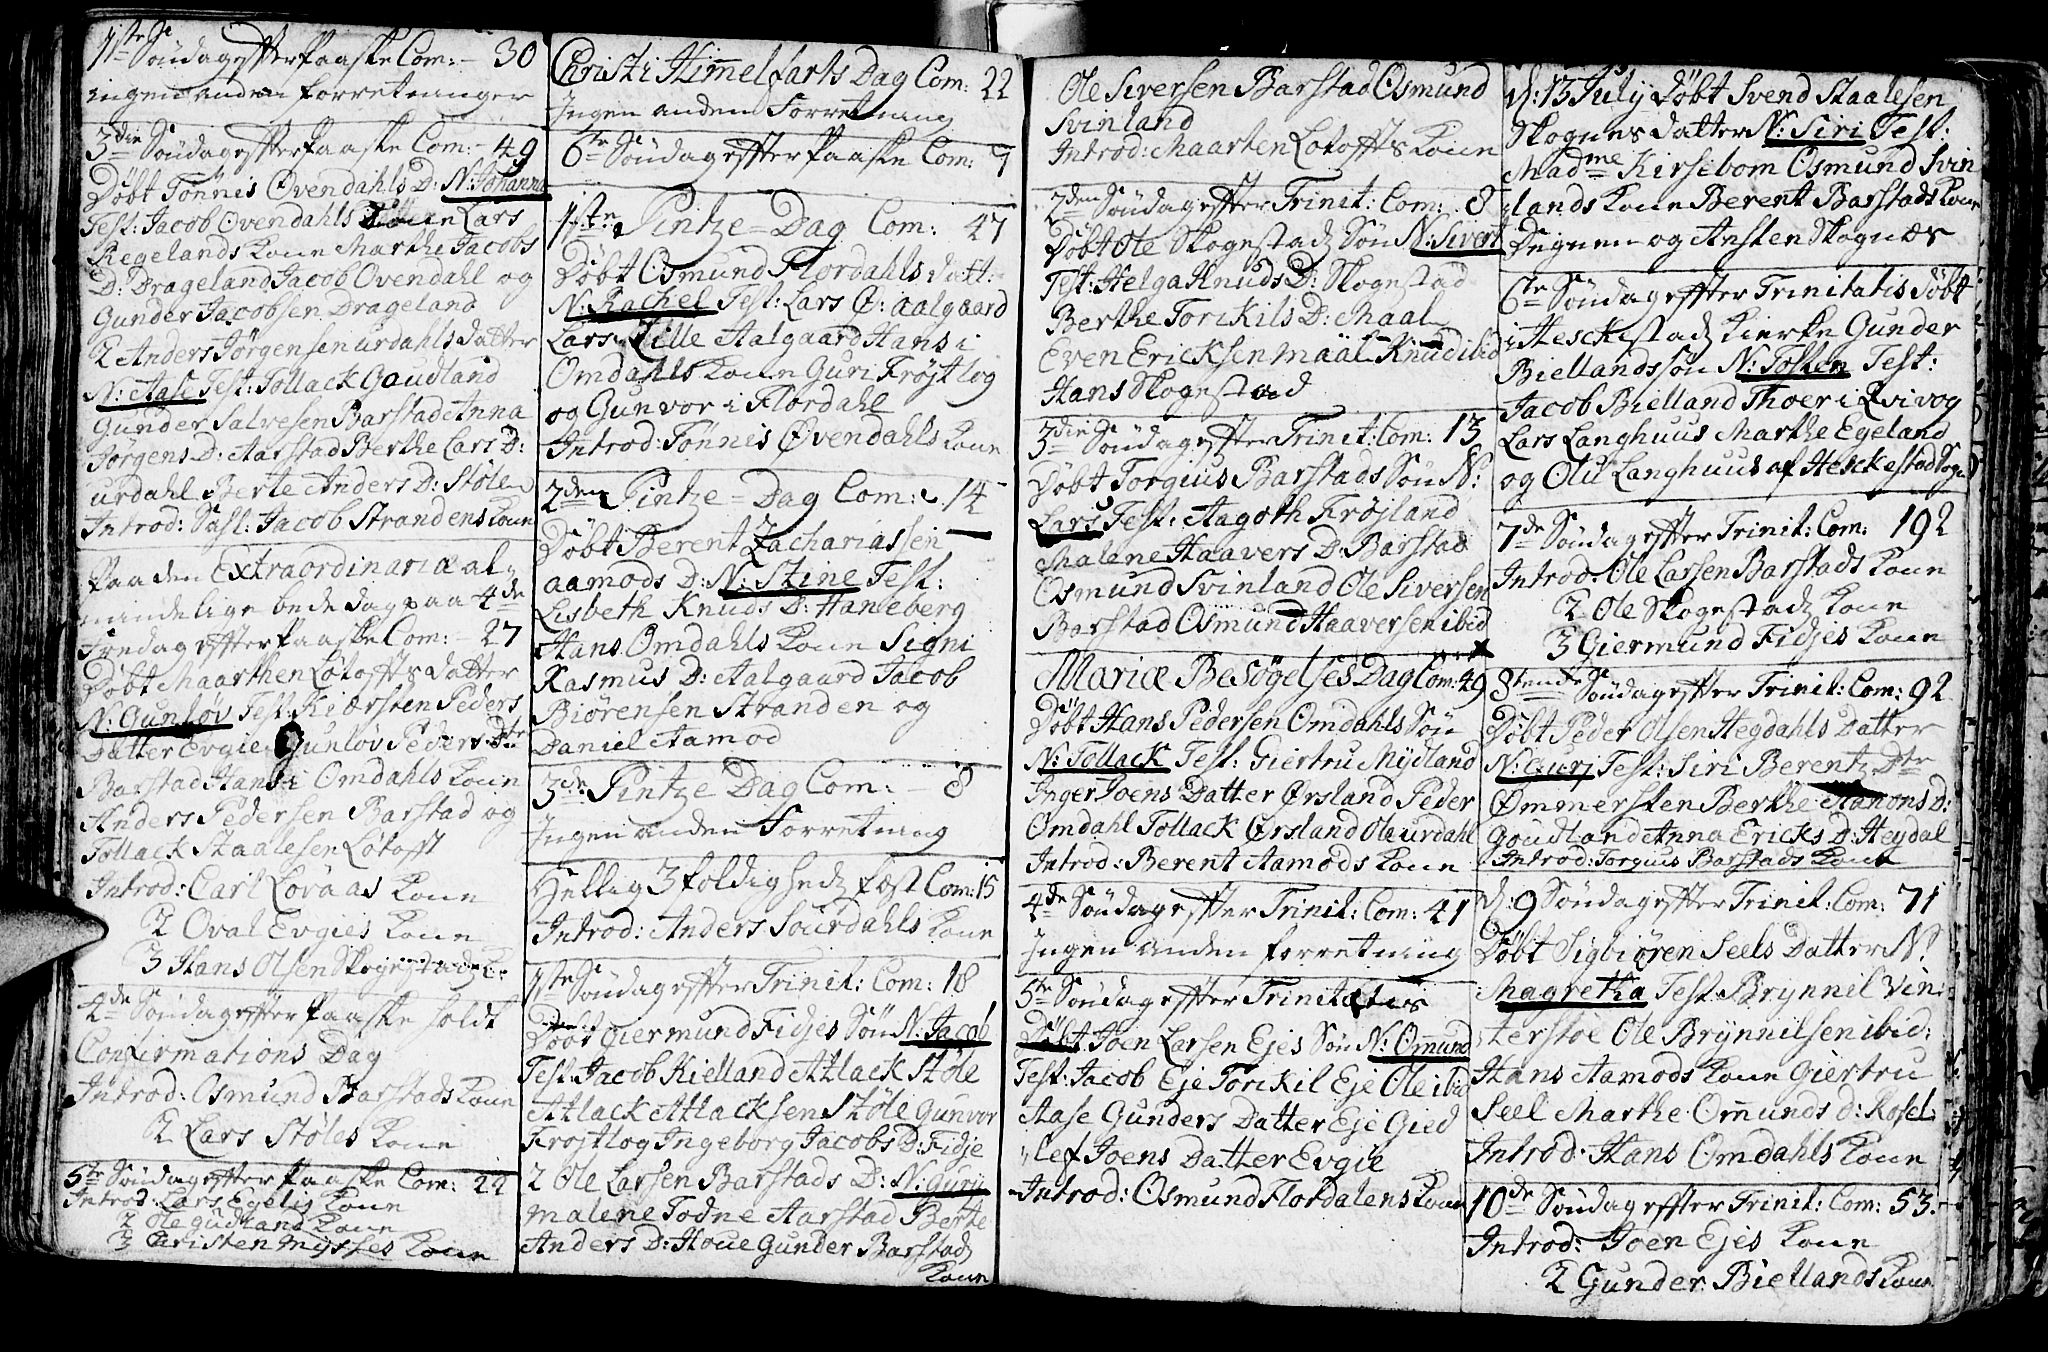 1ste Söndag effter Paaske Com: - 30
ingen anden forretninger
3die Söndag effter Paaske Com: - 49
Döbt Tönnis Ovendahls D: N: Johanna
Test: Jacob Ovendahls Kone Lars
Regelands Kone Marthe Jacobs
D: Drageland Jacob Ovendahl og
Gunder Jacobsen Drageland
2 Anders Jörgensen urdahls datter
N: Aase Test: Tollack Gaudland
Gunder Salvesen Barstad Anna
Jörgens D: Aarstad Berthe Lars D:
urdahl Berte Anders D: Stöle
Introd: Jacob Strandens Kone
Paa den Extraordinariæ al
mindelige bededag paa 4de
Fredag effter Paaske Com: - 27
Döbt Maarthen Lötoffts datter
N: Gunlöv Test: Kiærsten Peders
Datter Evgie Gunlöv Peders Dtr
Barstad Hans i Omdahls Kone
Anders Pedersen Barstad og
Tollack Staalesen Lötofft
Introd: Carl Lovaas Kone
2 Oval Evgies Kone
3 Hans Olsen Skogestads K:
4de Söndag effter Paaske holdt
Confirmations Dag
Introd: Osmund Barstads Kone
2 Lars Stöles Kone
5te Söndag effter Paaske Com: 22
Introd: Lars Egelis Kone
2 Ole Gudland Kone
3 Christen Mysses Kone
Christi Himmelfarts Dag Com: 22
Ingen anden Forretning
6te Söndag effter Paaske Com: 7
1ste Pintze-Dag Com: 47
Döbt Osmund Flordahls datt:
N: Rachel Test: Lars Ø: Aalgaard
Lars Lille Aalgaard Hans i
Omdahls Kone Guri Fröjtlog
og Gunvor i Flordahl
Introd: Tönnis Øvendahls Kone
2den Pintze-Dag Com: 14
Döbt Berent Zachariassen
aamods D: N: Stine Test:
Lisbeth Knuds D: Haneberg
Hans Omdahls Kone Signi
Rasmus D: Aalgaard Jacob
Biörensen Stranden og
Daniel Aamod
3de Pintze Dag Com: - 8
Ingen anden Forretning
Hellig 3foldigheds fæst Com: 15
Introd: Anders Sourdahls Kone
1ste Söndag effter Trinit: Com: 18
Döbt Giermund Fidjes Sön N: Jacob
Test: Jacob Kielland Atlack Stöle
Atlack Atlacksen Stöle Gunvor
Frojtlog Ingeborg Jacobs D: Fidje
2 Ole Larsen Barstads D: N: Gurji
Malene Todne Aarstad Berte
Anders D: Houe Gunder Barstads
Kone
Ole Siversen Barstad Osmund
Svinland
Introd: Maarten Lotoffts Kone
2den Söndag effter Trinit: Com: 8
Döbt Ole Skogestads Sön N: Sivert
Test: Helga Knuds D: Skogestad
Berthe Torckils D: Maal
Even Ericksen Maäl Knud ibid
Hans Skogestad
3die Söndag effter Trinit: Com: 13
Döbt Torgius Barstads Sön N:
Lars Test: Aagoth Fröjland
Malene Haavers D: Barstad
Osmund Svinland Ole Siversen
Barstad Osmund Haaversen ibid
Mariæ Besögelses Dag Com: 49
Döbt Hans Pedersen Omdahls Sön
N: Tollack Test: Giertru Mydland
Inger Joens Datter Ørsland Peder
Omdahl Tollack Ørsland Ole urdahl
Introd: Berent Aamods Kone
4de Söndag effter Trinit: Com: 41
Ingen anden forretning
5te Söndag effter Trinitatis
Döbt Joen Larsen Ejes Sön N: Omund
Test: Jacob Eje Torckil Eje Ole ibid
Aase Gunders Datter Eje Gied
lef Joens Datter Evgie
Introd: Osmund Flordalens Kone
d: 13 July Döbt Svend Staalesen
Skognes datter N: Siri Test:
Madme Kirsebom Osmund Svin
lands Kone Berent Barstads Kone
Degnen og Ansten Skognæs
6te Söndag effter Trinitatis Döbt
i Hesckestad Kierke Gunder
Biellands sön N: Tosten Test:
Jacob Bielland Thoer i Qvivog
Lars Langhuus Marthe Egeland
og Olu Langhuus af Heskestad Sogn
7de Söndag effter Trinit: Com: 192
Introd: Ole Larsen Barstads Kone
2 Ole Skogestads Kone
3 Giermund Fidjes Kone
8tende Söndag effter Trinit: Com: 92
Döbt Peder Olsen Hegdahls Datter
N: Gurj Test: Siri Berentz Dtr
Ømmersten Berthe Haaons D:
Goudland Anna Ericks D: Heydal
Introd: Torgius Barstads Kone
d: 9 Söndag effter Trinit: Com: 71
Döbt Sigbiören Seels Datter N:
Magretha Test: Brynnil Vin
terstoe Ole Brynnilsen ibid:
Hans Aamods Kone Giertru
Seel Marthe Omunds d: Rosel
Introd: Hans Omdahls Kone
10de Söndag effter Trinit: Com: 53.
Introd: Joen Ejes Kone
2 Gunder Biellands Kone